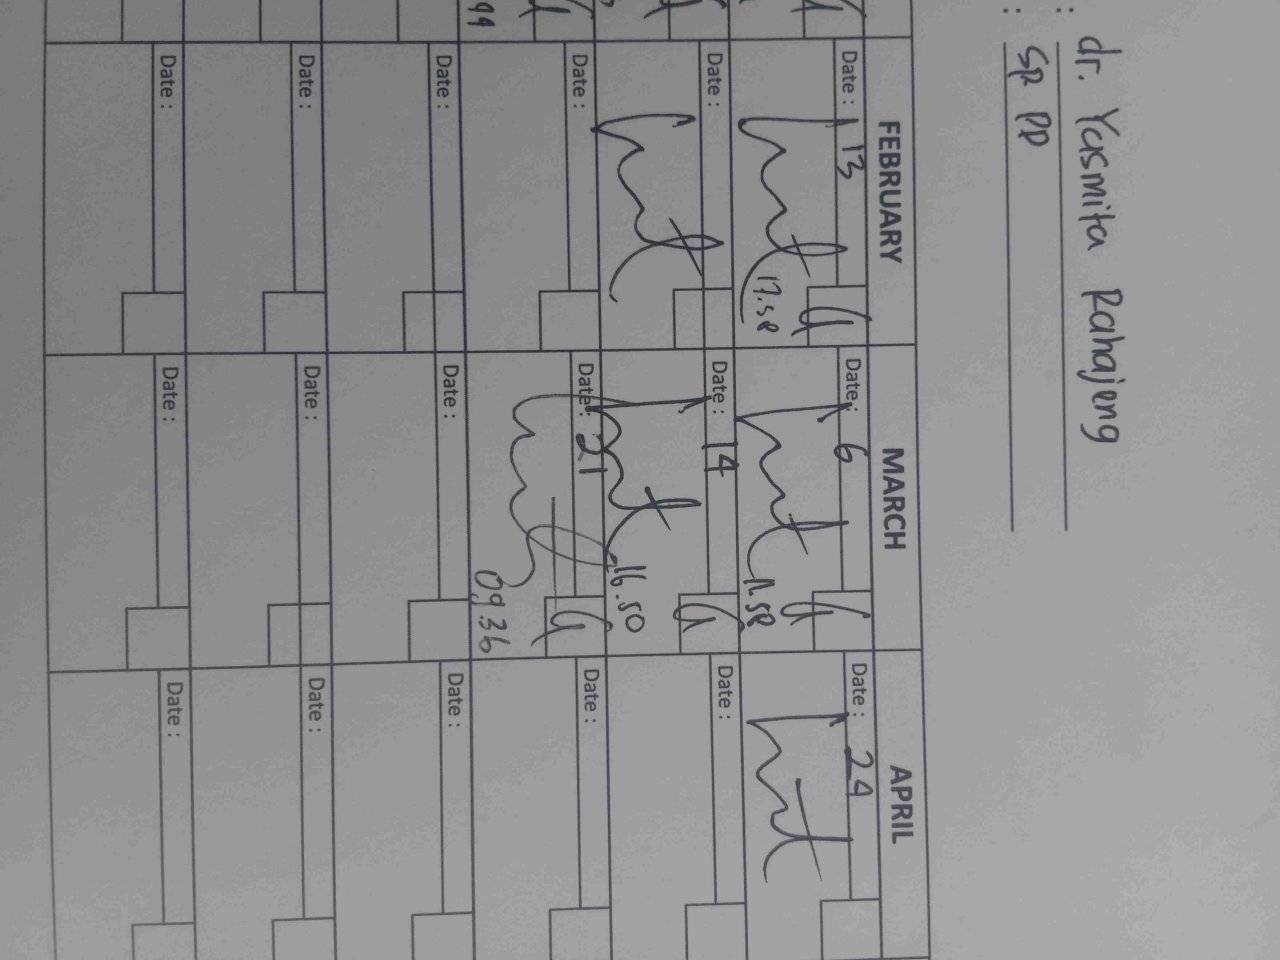 : dr. Yasmita Rahajeng
: SP PD
FEBRUARY MARCH APRIL
Date : 13 Date : 6 Date : 24
17.58 11.58
Date : Date : 14 Date :
16.50
Date : Date : 21 Date :
09.36
Date : Date : Date :
Date : Date : Date :
Date : Date : Date :